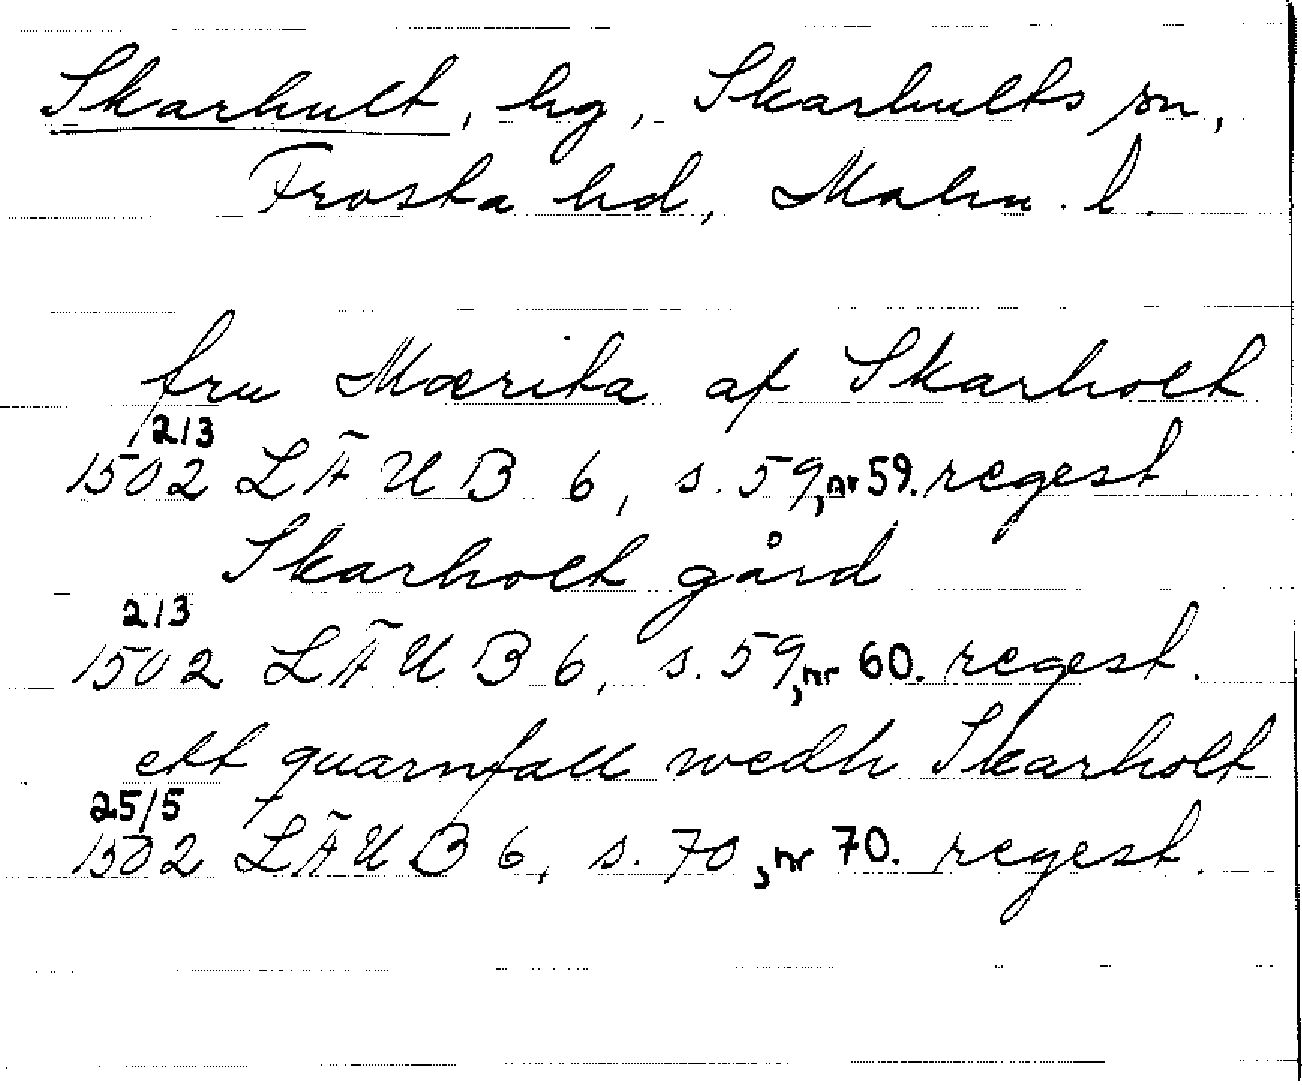 Skarhult, hg, Skarhults sn,
Frosta hd, Malm. l.
fru Mærita af Skarholt
2/3
1502 LÄUB 6, s. 59, nr 59. regest
Skarholt gård
2/3
1502 LÄUB 6, s. 59, nr 60. regest.
ett quarnfall wedh Skarholt
25/5
1502 LÄUB 6, s. 70, nr 70. regest.